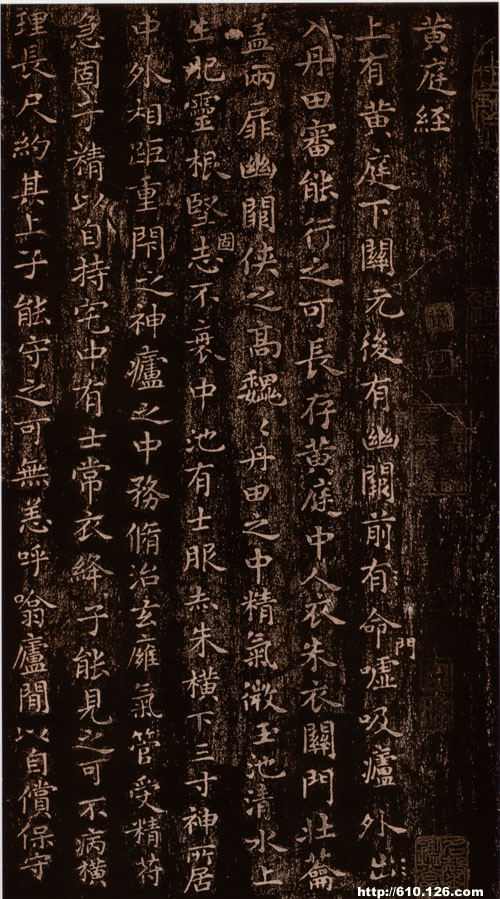 黄庭經
上有黄庭下關元後有幽闕前有命門噓吸廬外出
入丹田審能行之可長存黄庭中人衣朱衣關門壯籥
盖兩扉幽闕俠之高巍〻丹田之中精氣微玉池清水上
生肥靈根堅固志不衰中池有士服赤朱橫下三寸神所居
中外相距重閇之神廬之中務脩治玄廱氣管受精符
急固子精以自持宅中有士常衣絳子能見之可不病橫
理長尺約其上子能守之可無恙呼噏廬閒以自償保守
http://610.126.com/